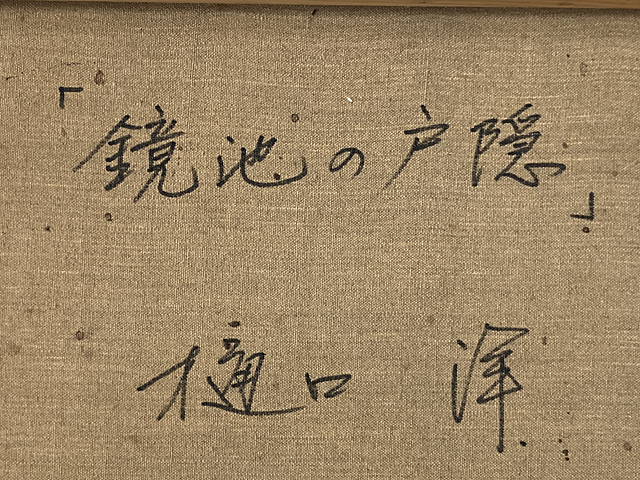 「鏡池の戸隠」
樋口 洋